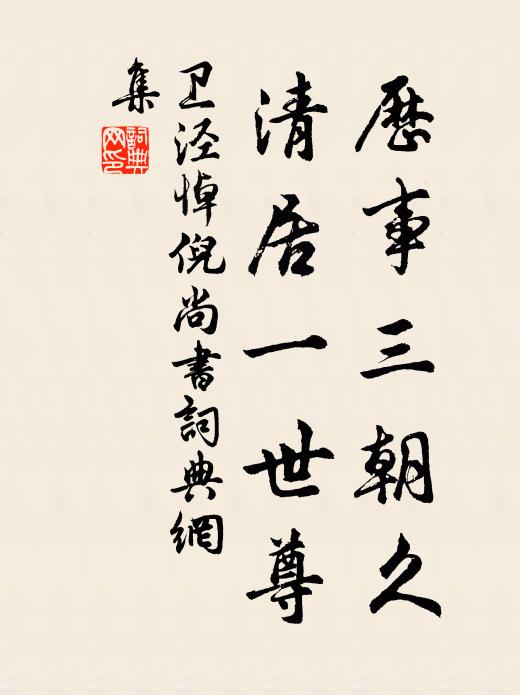 歷事三朝久
清居一世尊
卫泾悼倪尚書詞典網
集
詞典网印